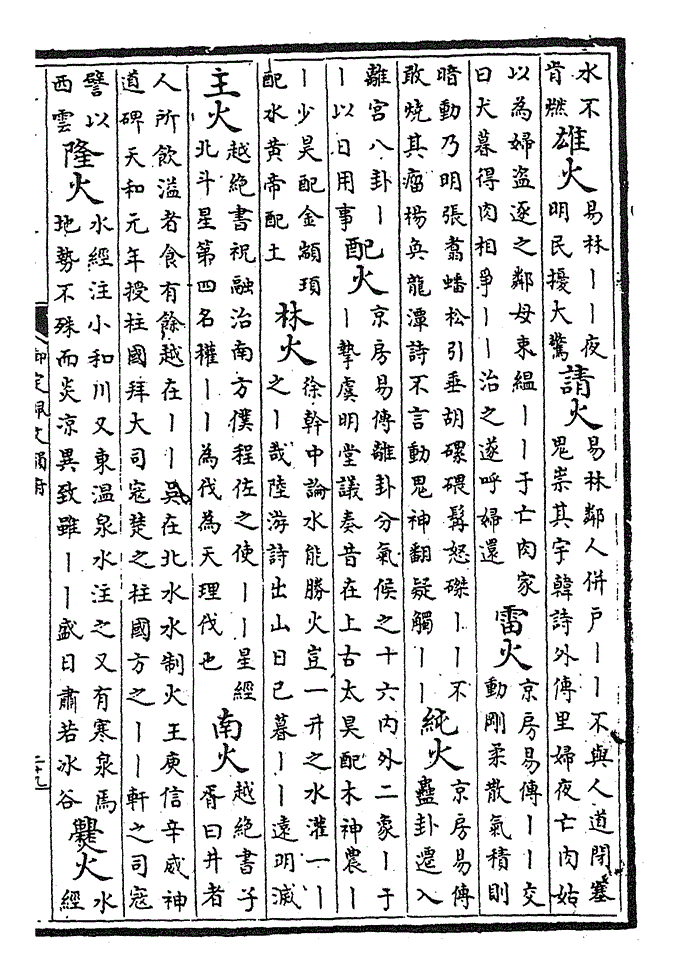 水不
肯燃
雄火
易林丨丨夜
明民擾大驚
請火
易林鄰人併户丨丨不與人道閉塞
鬼祟其宇韓詩外傳里婦夜亡肉姑
以為婦盜逐之鄰母束緼丨丨于亡肉家
曰犬暮得肉相爭丨丨治之遂呼婦還
雷火
京房易傳丨丨交
動剛柔散氣積則
暗動乃明張翥蟠松引垂胡磥碨髯怒磔丨丨不
敢燒其瘤楊奐龍潭詩不言動鬼神翻疑觸丨丨
純火
京房易傳
蠱卦遷入
離宮八卦丨
丨以日用事
配火
京房易傳離卦分氣候之十六内外二象丨于
丨摯虞明堂議奏昔在上古太昊配木神農丨
丨少昊配金顓頊
配水黄帝配土
林火
徐幹中論水能勝火豈一升之水灌一丨
之丨哉陸游詩出山日已暮丨丨遠明滅
主火
越絶書祝融治南方僕程佐之使丨丨星經
北斗星第四名權丨丨為伐為天理伐也
南火
越絶書子
胥曰井者
人所飲溢者食有餘越在丨丨吳在北水水制火王庾信辛威神
道碑天和元年授柱國拜大司寇楚之柱國方之丨丨軒之司寇
譬以
西雲
隆火
水經注小和川又東溫泉水注之又有寒泉焉
地勢不殊而炎涼異致雖丨丨盛日肅若冰谷
爨火
水
經
御定佩文韻府
二十九